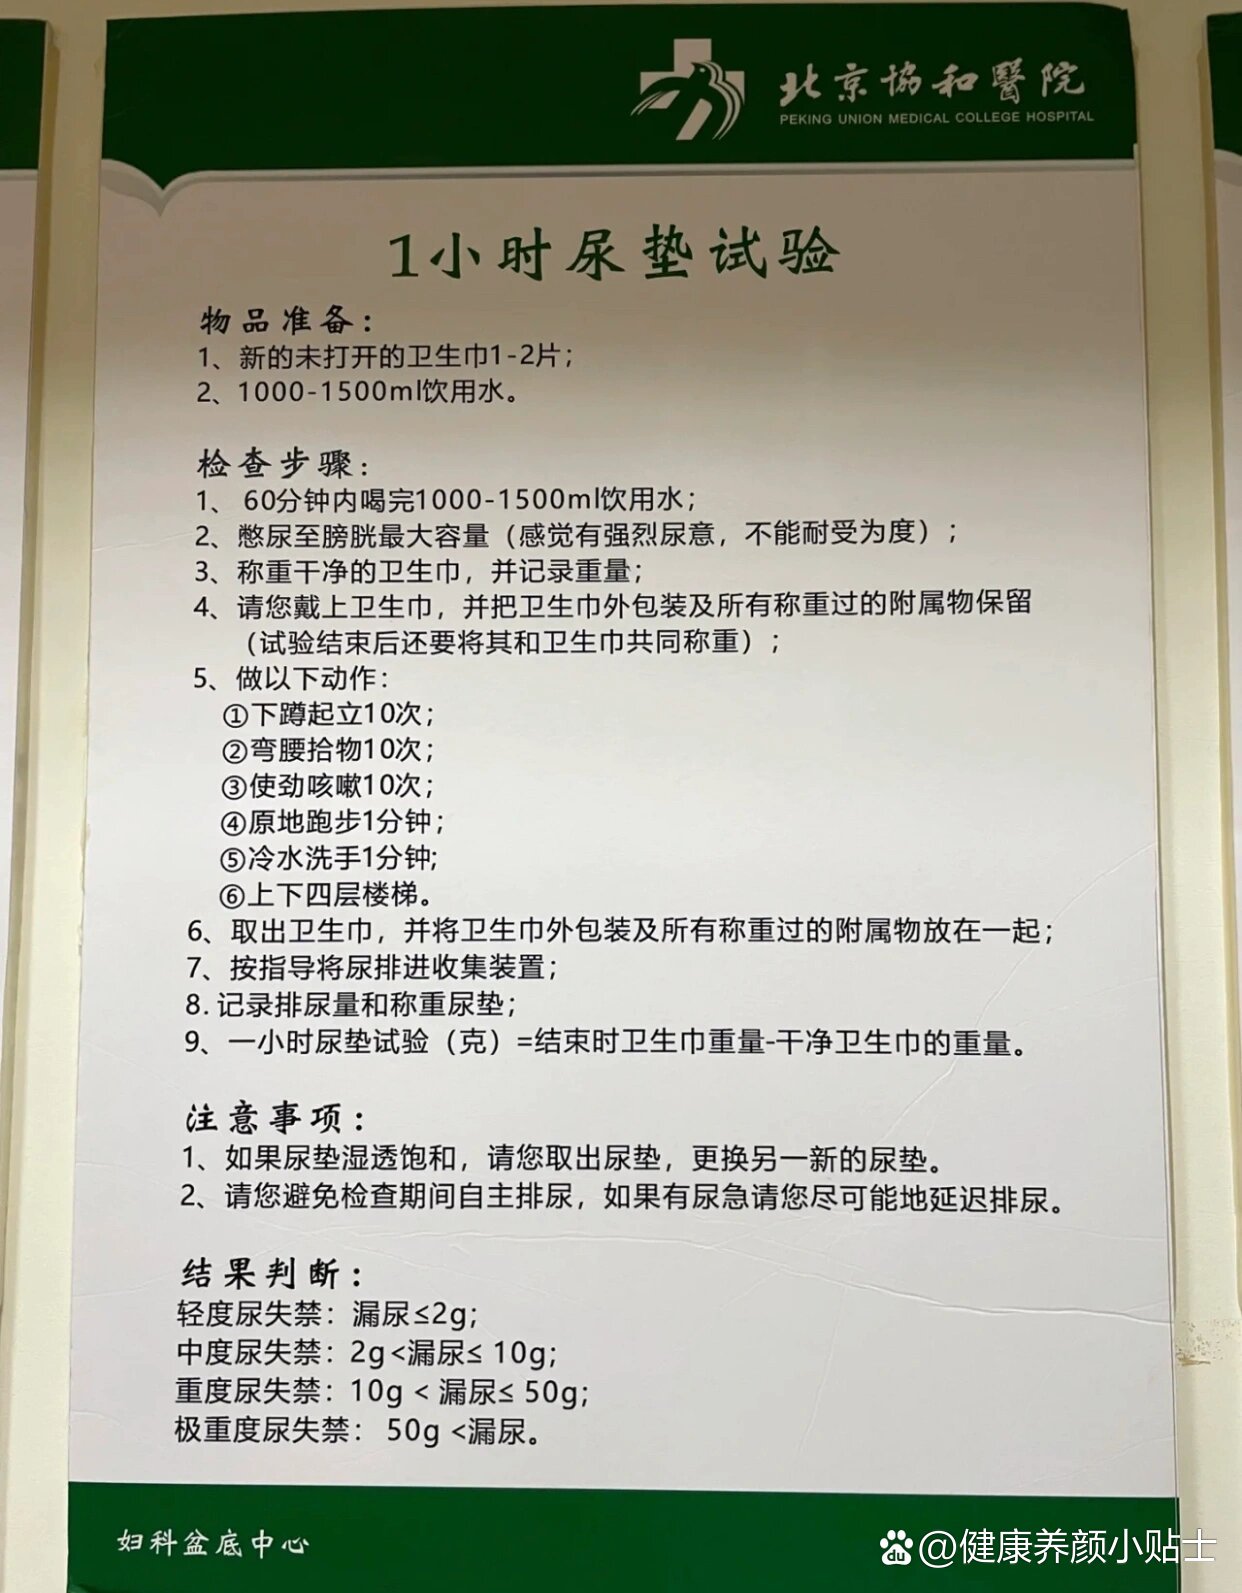 北京協和醫院
PEKING UNION MEDICAL COLLEGE HOSPITAL
1小时尿垫试验
物品准备：
1、新的未打开的卫生巾1-2片；
2、1000-1500ml饮用水。
检查步骤：
1、 60分钟内喝完1000-1500ml饮用水；
2、憋尿至膀胱最大容量（感觉有强烈尿意，不能耐受为度）；
3、称重干净的卫生巾，并记录重量；
4、请您戴上卫生巾，并把卫生巾外包装及所有称重过的附属物保留
（试验结束后还要将其和卫生巾共同称重）；
5、做以下动作：
①下蹲起立10次；
②弯腰拾物10次；
③使劲咳嗽10次；
④原地跑步1分钟；
⑤冷水洗手1分钟;
⑥上下四层楼梯。
6、取出卫生巾，并将卫生巾外包装及所有称重过的附属物放在一起；
7、按指导将尿排进收集装置；
8. 记录排尿量和称重尿垫；
9、一小时尿垫试验（克）=结束时卫生巾重量-干净卫生巾的重量。
注意事项：
1、如果尿垫湿透饱和，请您取出尿垫，更换另一新的尿垫。
2、请您避免检查期间自主排尿，如果有尿急请您尽可能地延迟排尿。
结果判断：
轻度尿失禁：漏尿≤2g；
中度尿失禁：2g<漏尿≤ 10g；
重度尿失禁：10g < 漏尿≤ 50g；
极重度尿失禁： 50g <漏尿。
妇科盆底中心
du @健康养颜小贴士